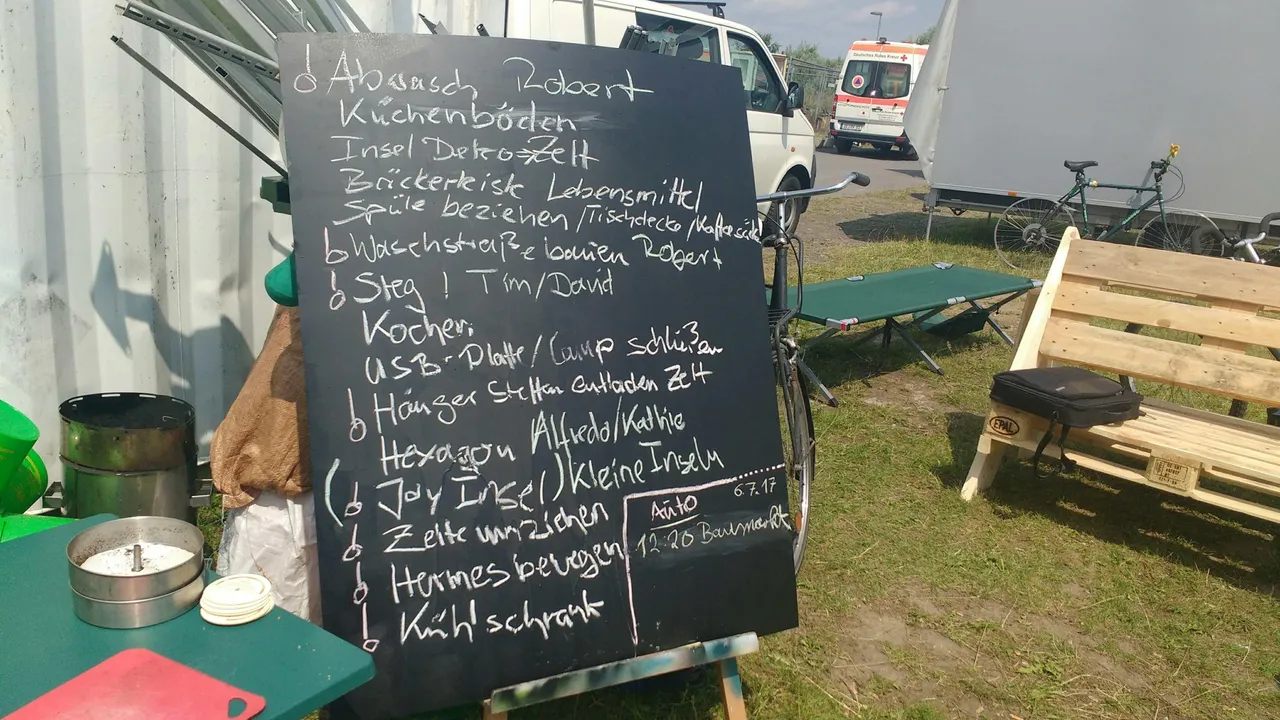 ! Abwasch Robert
Küchenböden
Insel Deko Zelt
Bäckerkiste Lebensmittel
Spüle beziehen / Tischdecke /
! Waschstraße bauen Robert
! Steg ! Tim/David
Kochen
USB-Platte / Camp schließen
! Hänger Steffen entladen Zelt
Hexagon Alfredo/Kathie
(! Joy Insel) Kleine Inseln
! Zelte umziehen
! Hermes bewegen
! Kühlschrank
6.7.17
Auto
12:20 Baumarkt
Deutsches Rotes Kreuz
EPAL